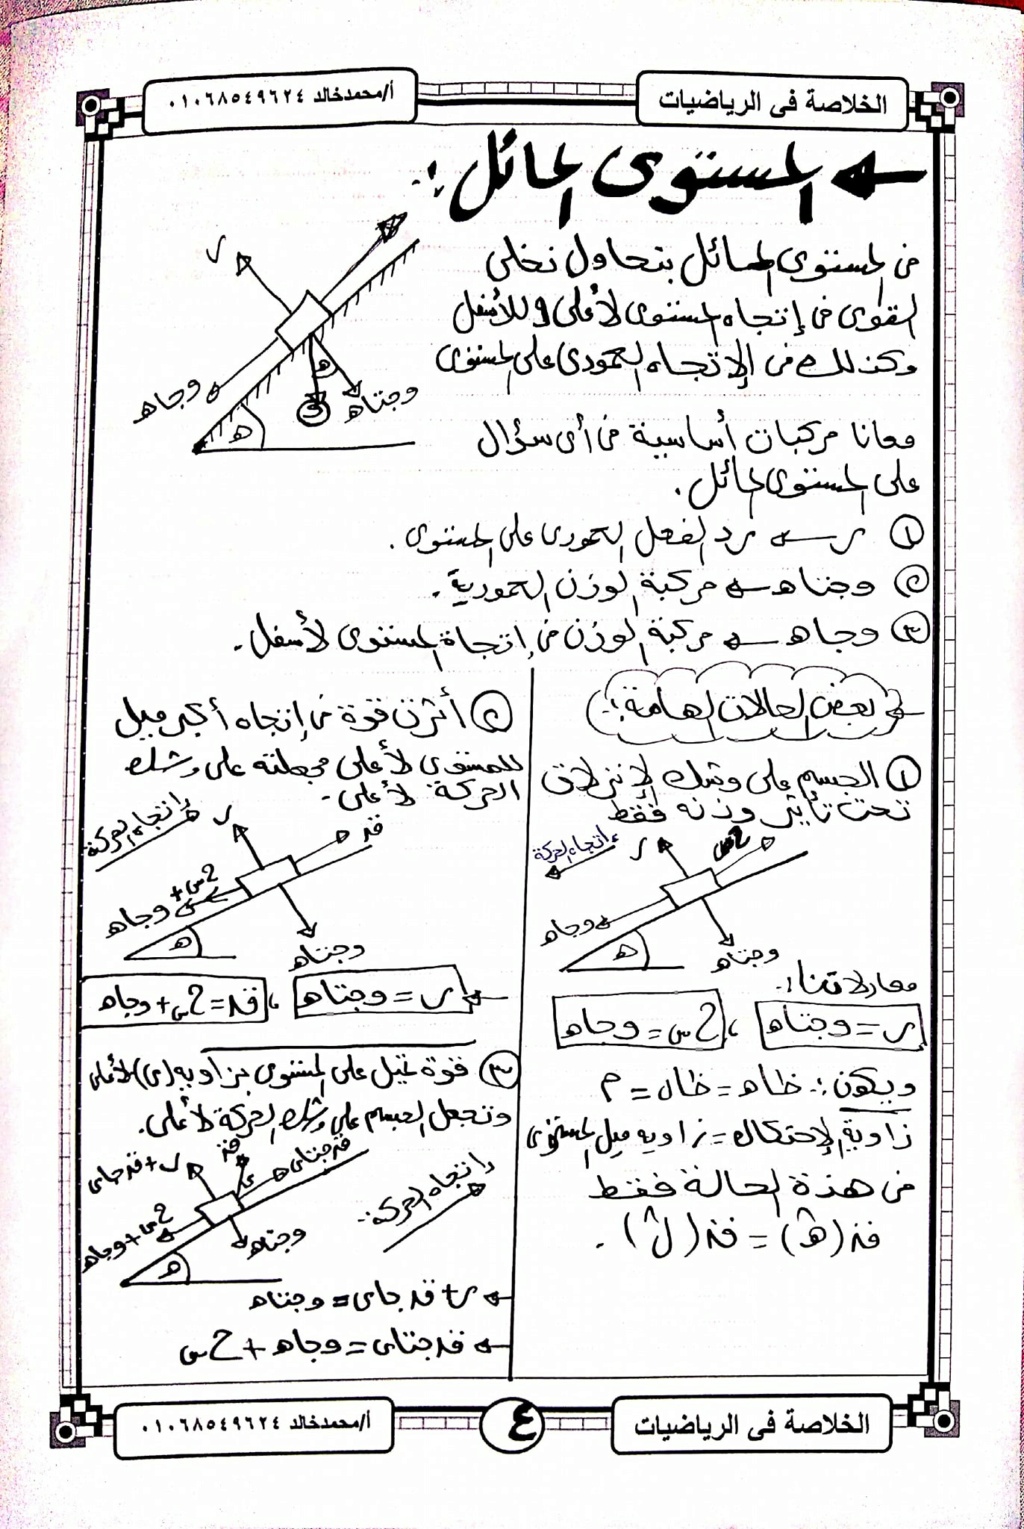 الخلاصة فى الرياضيات
أ/محمدخالد ٠١٠٦٨٥٤٩٦٢٤
المستوى المائل :-
فى المستوى المائل بتحاول تخلى
القوى فى إتجاه المستوى لأعلى و للأسفل
وكذلك فى الإتجاه العمودى على المستوى
ر
وجاه
وجتاه
و
ه
ه
معانا مركبات أساسية فى أى سؤال
على المستوى المائل .
① ر ← رد الفعل العمودى على المستوى .
② وجتاه ← مركبة الوزن العمودية .
③ وجاه ← مركبة الوزن فى إتجاة المستوى لأسفل .
بعض الحالات الهامة :-
① الجسم على وشك الإنزلاق
تحت تأثير وزنه فقط
إتجاه الحركة
ر
ح س
وجاه
ه
وجتاه
معادلاتنا :-
ر = وجتاه ، ح س = وجاه
ويكون :- ظاه = ظال = م
زاوية الإحتكاك = زاويه ميل المستوى
فى هذة الحالة فقط
② أثرت قوة فى إتجاه أكبر ميل
للمستوى لأعلى فجعلته على وشك
الحركة لأعلى .
إتجاه الحركة
ر
قه
ح س + وجاه
ه
وجتاه
ر = وجتاه ، قه = ح س + وجاه
③ قوة تميل على المستوى بزاويه (ى) لأعلى
وتجعل الجسم على وشك الحركة لأعلى .
ر + قه جاى
قه
ى
قه جتاى
إتجاه الحركة
ح س + وجاه
وجتاه
ه
ر + قه جاى = وجتاه
قه جتاى = وجاه + ح س
الخلاصة فى الرياضيات
٤
أ/محمدخالد ٠١٠٦٨٥٤٩٦٢٤